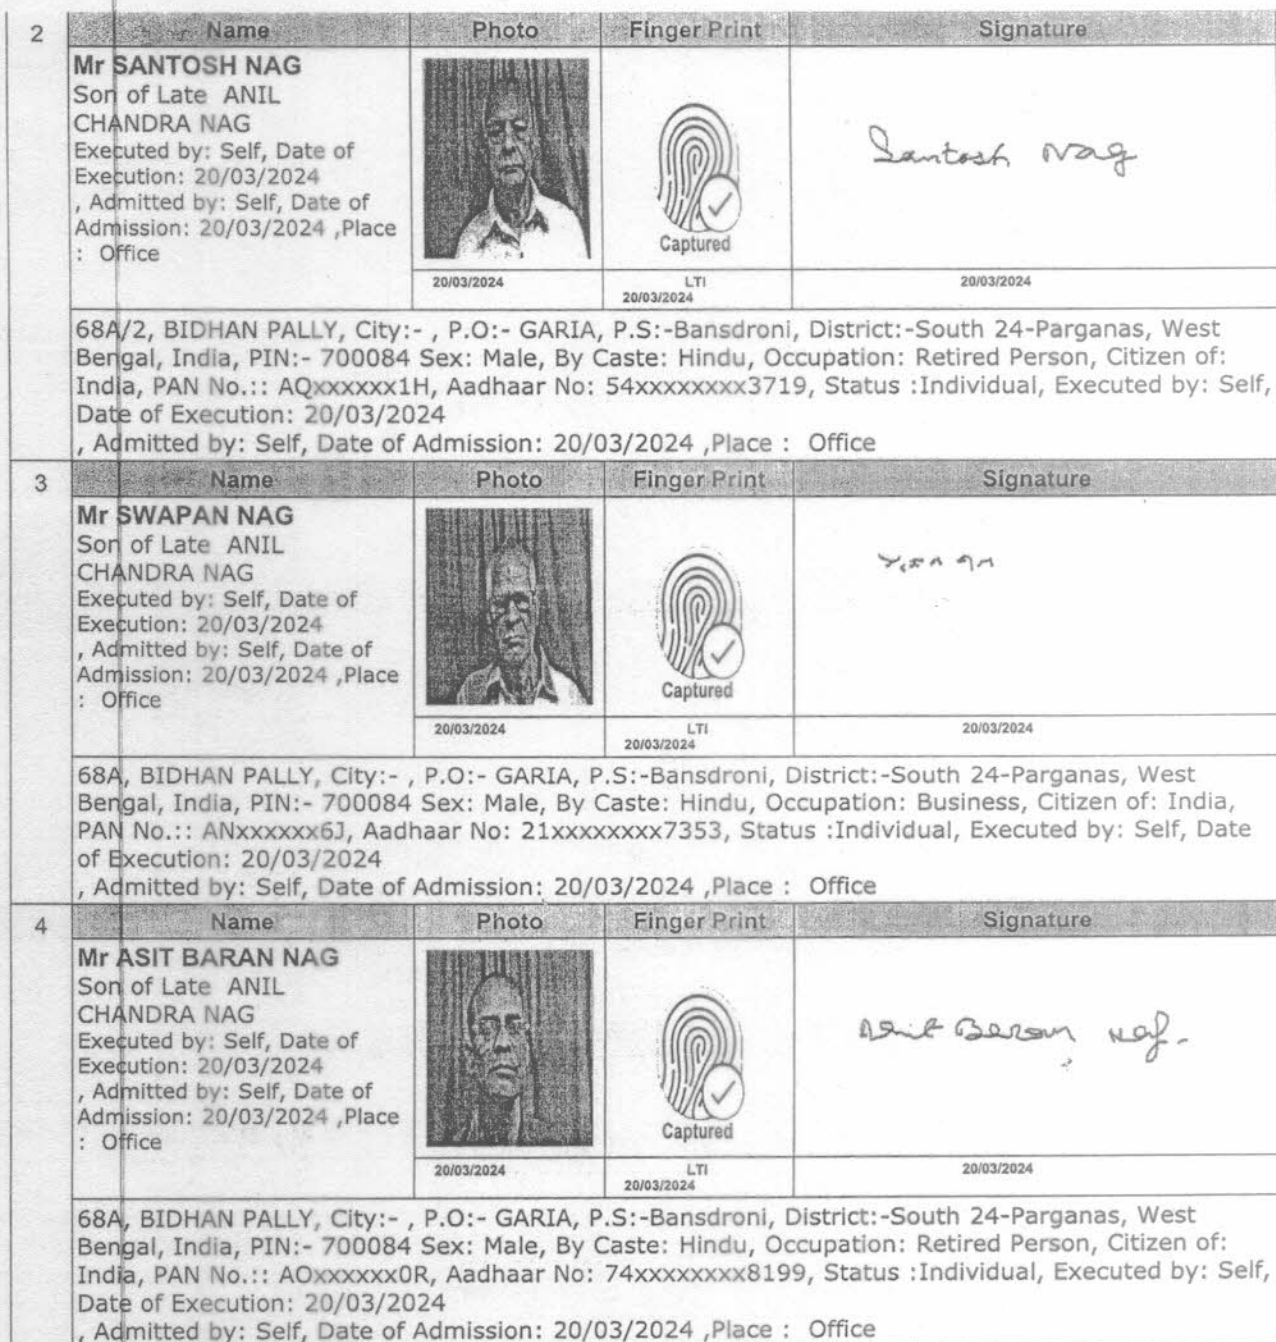 2
Name Photo Finger Print Signature
Mr SANTOSH NAG
Son of Late ANIL
CHANDRA NAG
Executed by: Self, Date of
Execution: 20/03/2024
, Admitted by: Self, Date of
Admission: 20/03/2024 ,Place
: Office
Captured
Santosh Nag
20/03/2024 LTI 20/03/2024
20/03/2024
68A/2, BIDHAN PALLY, City:- , P.O:- GARIA, P.S:-Bansdroni, District:-South 24-Parganas, West
Bengal, India, PIN:- 700084 Sex: Male, By Caste: Hindu, Occupation: Retired Person, Citizen of:
India, PAN No.:: AQxxxxxx1H, Aadhaar No: 54xxxxxxxx3719, Status :Individual, Executed by: Self,
Date of Execution: 20/03/2024
, Admitted by: Self, Date of Admission: 20/03/2024 ,Place : Office
3
Name Photo Finger Print Signature
Mr SWAPAN NAG
Son of Late ANIL
CHANDRA NAG
Executed by: Self, Date of
Execution: 20/03/2024
, Admitted by: Self, Date of
Admission: 20/03/2024 ,Place
: Office
Captured
20/03/2024 LTI 20/03/2024
20/03/2024
68A, BIDHAN PALLY, City:- , P.O:- GARIA, P.S:-Bansdroni, District:-South 24-Parganas, West
Bengal, India, PIN:- 700084 Sex: Male, By Caste: Hindu, Occupation: Business, Citizen of: India,
PAN No.:: ANxxxxxx6J, Aadhaar No: 21xxxxxxxx7353, Status :Individual, Executed by: Self, Date
of Execution: 20/03/2024
, Admitted by: Self, Date of Admission: 20/03/2024 ,Place : Office
4
Name Photo Finger Print Signature
Mr ASIT BARAN NAG
Son of Late ANIL
CHANDRA NAG
Executed by: Self, Date of
Execution: 20/03/2024
, Admitted by: Self, Date of
Admission: 20/03/2024 ,Place
: Office
Captured
Asit Baran Nag.
20/03/2024 LTI 20/03/2024
20/03/2024
68A, BIDHAN PALLY, City:- , P.O:- GARIA, P.S:-Bansdroni, District:-South 24-Parganas, West
Bengal, India, PIN:- 700084 Sex: Male, By Caste: Hindu, Occupation: Retired Person, Citizen of:
India, PAN No.:: AOxxxxxx0R, Aadhaar No: 74xxxxxxxx8199, Status :Individual, Executed by: Self,
Date of Execution: 20/03/2024
, Admitted by: Self, Date of Admission: 20/03/2024 ,Place : Office